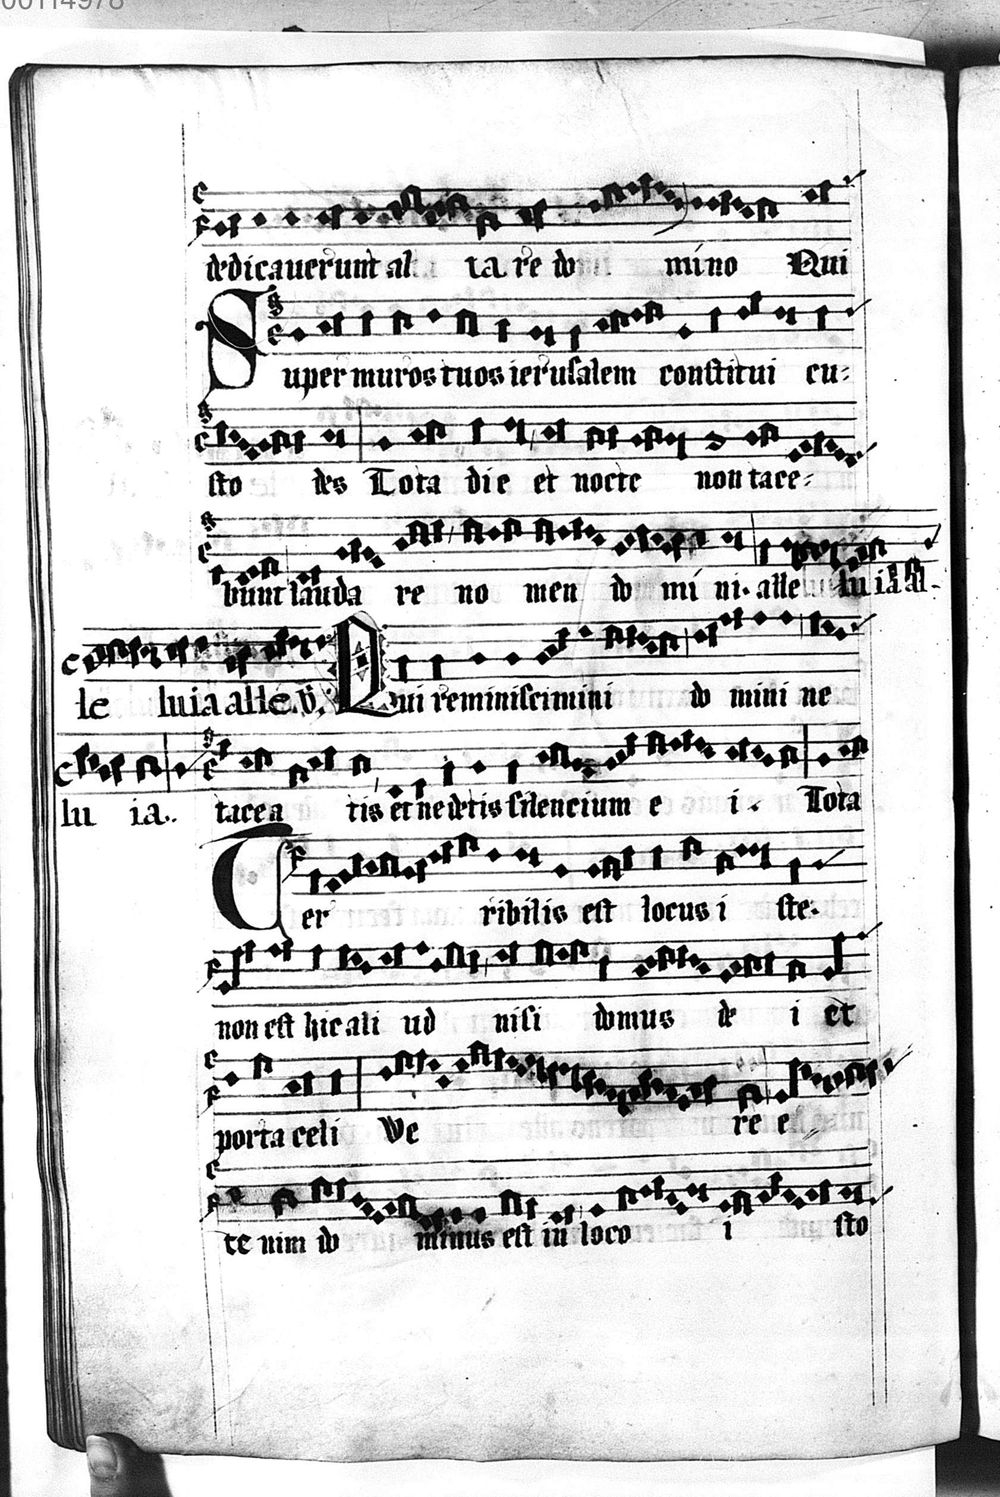 00114978
dedicauerunt al ta re do mino Qui
Super muros tuos ierusalem constitui cu-
sto des Tota die et nocte non tace-
bunt lauda re no men do mi ni. alle lu ia al-
le luia alle. v. Qui reminiscimini do mini ne
lu ia. tacea tis et ne detis silencium e i. Tota
Ter ribilis est locus i ste.
non est hic ali ud nisi domus de i et
porta celi Ve re e-
te nim do minus est in loco i sto